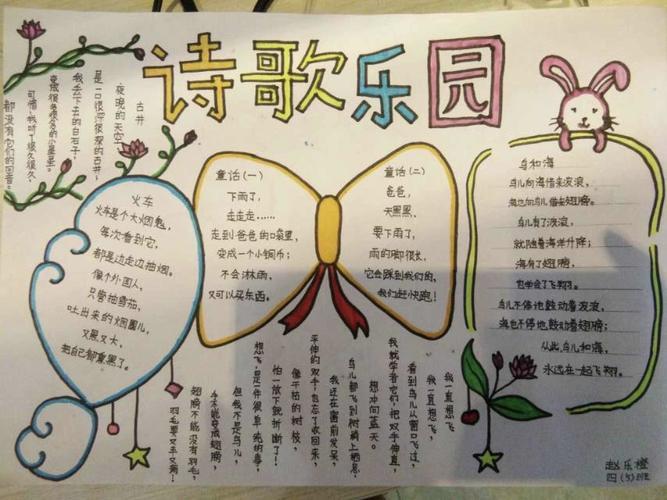 诗歌乐园
古井
夜晚的天空,
是一口很深很深的古井,
我丢下去的白石子,
变成很多很多的小星星。
可惜,我听了很久很久,
都没有它们的回音。
火车
火车是个大烟鬼,
每次看到它,
都是边走边抽烟。
像个外国人,
只管抽雪茄,
吐出来的烟圈儿,
又黑又大,
把自己都熏黑了。
童话(一)
下雨了,
走走走……
走到爸爸的口袋里,
变成一个小铜币;
不会淋雨,
又可以买东西。
童话(二)
爸爸,
天黑黑,
要下雨了,
雨的脚很长,
它会踩到我们的,
我们赶快跑!
鸟和海
鸟儿向海借来波浪,
海也向鸟儿借来翅膀。
鸟儿有了波浪,
就随着海洋升降;
海有了翅膀,
也学会了飞翔。
鸟儿不停地鼓动着波浪,
海也不停地鼓动着翅膀;
从此,鸟儿和海,
永远在一起飞翔。
我一直想飞
我一直想飞,
看到鸟儿从窗口飞过,
我就学着它们,把双手伸直,
想冲向蓝天。
鸟儿都飞到树梢上栖息,
我还在窗前发呆,
平伸的双手,也忘了收回来,
像干枯的树枝,
怕一放下就折断了!
想飞,是一件很单纯的事,
但我不是鸟儿,
手不能变成翅膀,
翅膀不能没有羽毛,
羽毛要又丰又满!
赵乐橙
四(5)班